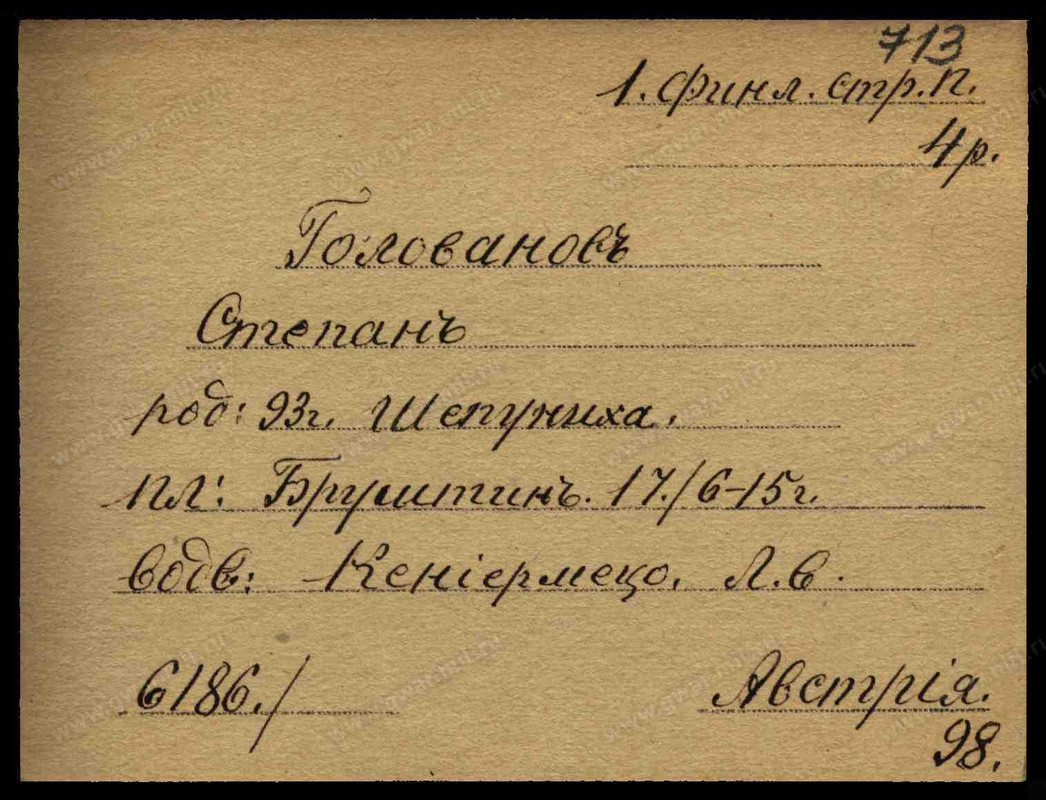 713
1. Финл. стр. п.
4 р.
Головановъ
Степанъ
род: 93 г. Шепуниха.
пл: Бруштинъ. 17./6-15 г.
водв: Кеніермецо. Л. в.
6186./
Австрія.
98.